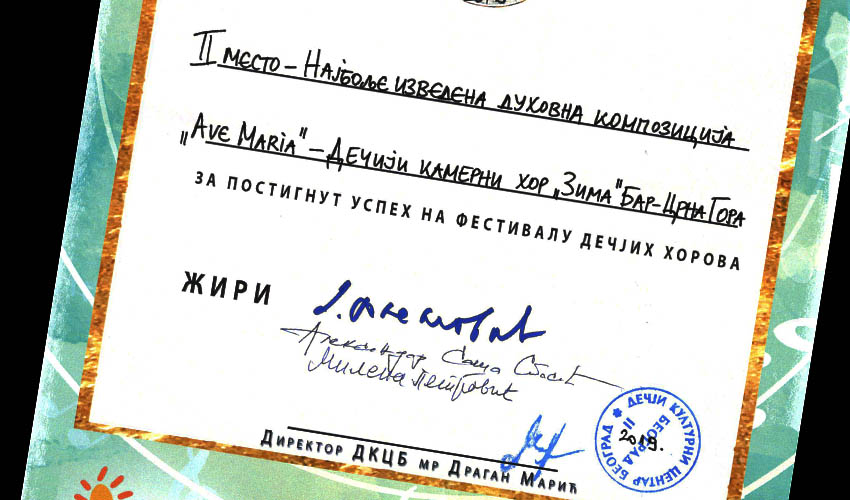 II место – Најбоље изведена духовна композиција
„Ave Maria" – Дечији камерни хор „Зима" Бар – Црна Гора
ЗА ПОСТИГНУТ УСПЕХ НА ФЕСТИВАЛУ ДЕЧЈИХ ХОРОВА
ЖИРИ
Александар Саша
Милена Петровић
Директор ДКЦБ мр Драган Марић
ДЕЧЈИ КУЛТУРНИ ЦЕНТАР БЕОГРАД
II
2019.
БЕОГРАД